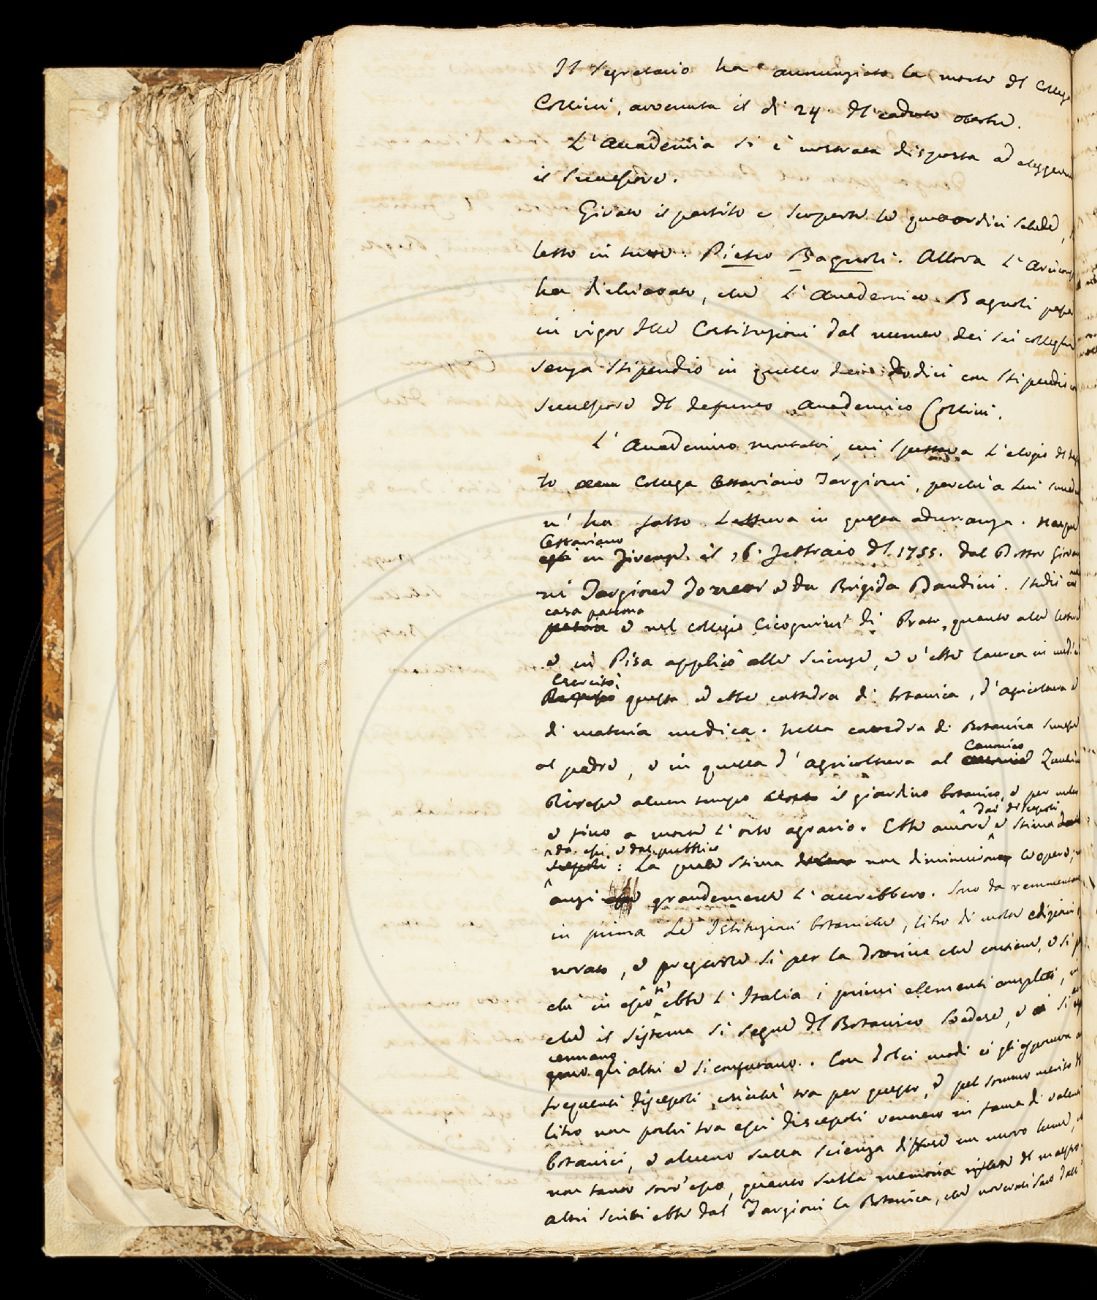 Il Segretario ha annunziato la morte del Colleg
Collini, avvenuta il dì 24. del caduto ottobre.
L'Accademia si è mostrata disposta ad elegger
il Successore.
Girato il partito e scoperte le quattordici schede,
letto in tutte: Pietro Bagnoli. Allora l'Arcicons
ha dichiarato, che l'Accademico Bagnoli passa
in vigor delle Costituzioni dal numero dei sei colleghi
senza stipendio in quello dei dodici con stipendio
successore del defunto Accademico Collini.
L'Accademico montatovi, cui spettava l'elogio del
to Collega Ottaviano Targioni, perchè a lui
n'ha fatto lettura in questa adunanza. Nacque
Ottaviano
in Firenze il 16. Febbraio del 1755. dal Dottor Giovan
ni Targioni Tozzetti e da Brigida Baudini. Studiò
casa paterna
e nel collegio Cicognini di Prato, quanto alle lettere
e in Pisa applicò alle scienze, e v'ebbe laurea in medi
Esercitò
questa ed ebbe cattedra di botanica, d'agricoltura e
di materia medica. Nella cattedra di Botanica
al padre, e in quella d'agricoltura al
Canonico
Zucchini
Resse alcun tempo il giardino botanico, e per
e fino a morte l'orto agrario. Ebbe amore e stima
dai discepoli
da essi e dal pubblico
: la quale stima non diminuirono le opere,
anzi grandemente l'accrebbero. Sono da rammentare
in prima le Istituzioni botaniche, libro di molte edizioni
norato, e pregevole sì per la dottrina che contiene, e sì
chè in esso ebbe l'Italia i primi elementi
che il sistema si segue del Botanico Svedese, e si
cennano
gli altri e si confutano. Con dolci modi ei gli
frequenti discepoli, sicchè tra per questo, e pel sommo merito del
libro non pochi tra essi discepoli vennero in fama di valenti
botanici, e alcuno sulla scienza diffuse un nuovo lume,
non tanto sovr'essa, quanto sulla memoria del maestro.
altri scritti ebbe dal Targioni la Botanica, che